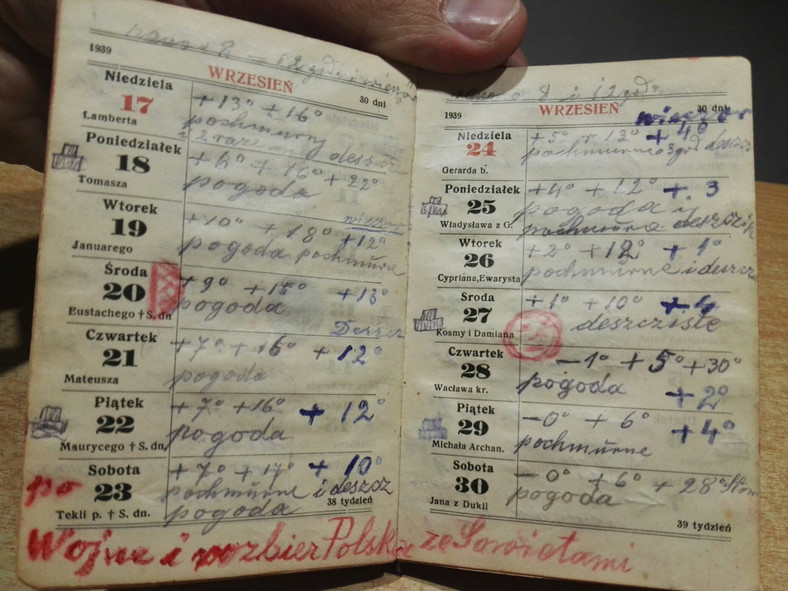 1939
WRZESIEŃ
30 dni
Niedziela
17
Lamberta
+13° +16°
pochmurny
2 raze deszcz
Poniedziałek
18
Tomasza
+6° +16° +22°
pogoda
Wtorek
19
Januarego
+10° +18° +12°
pogoda pochmurne
Środa
20
Eustachego † S. dn.
+9° +15° +13°
pogoda
Deszcz
Czwartek
21
Mateusza
+7° +16° +12°
pogoda
Piątek
22
Maurycego † S. dn.
+7° +16° +12°
pogoda
Sobota
23
Tekli p. † S. dn.
+7° +17° +10°
pochmurne i deszcz
pogoda
38 tydzień
po
Wojnie i rozbior Polska ze Sowietami
1939
WRZESIEŃ
30 dni
wieczor
Niedziela
24
Gerarda b.
+5° +13° +4°
pochmurne deszcz
Poniedziałek
25
Władysława z G.
+4° +12° +3
pogoda i
pochmurne deszczik
Wtorek
26
Cypriana, Ewarysta
+2° +12° +1°
pochmurne i deszcz
Środa
27
Kosmy i Damiana
+1° +10° +4
deszcziste
Czwartek
28
Wacława kr.
-1° +5° +30°
pogoda +2°
Piątek
29
Michała Archan.
-0° +6° +4°
pochmurne
Sobota
30
Jana z Dukli
-0° +6° +28°
pogoda
39 tydzień